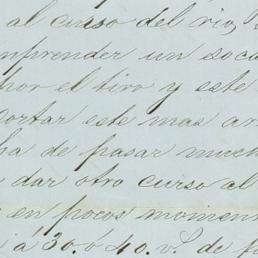 al curso del rio,
mprender un soca
hor el tiro y este
cortar este mas ar
ha de pasar much
dar otro curso al
en pocos moment
á 30. ó 40. v.s de